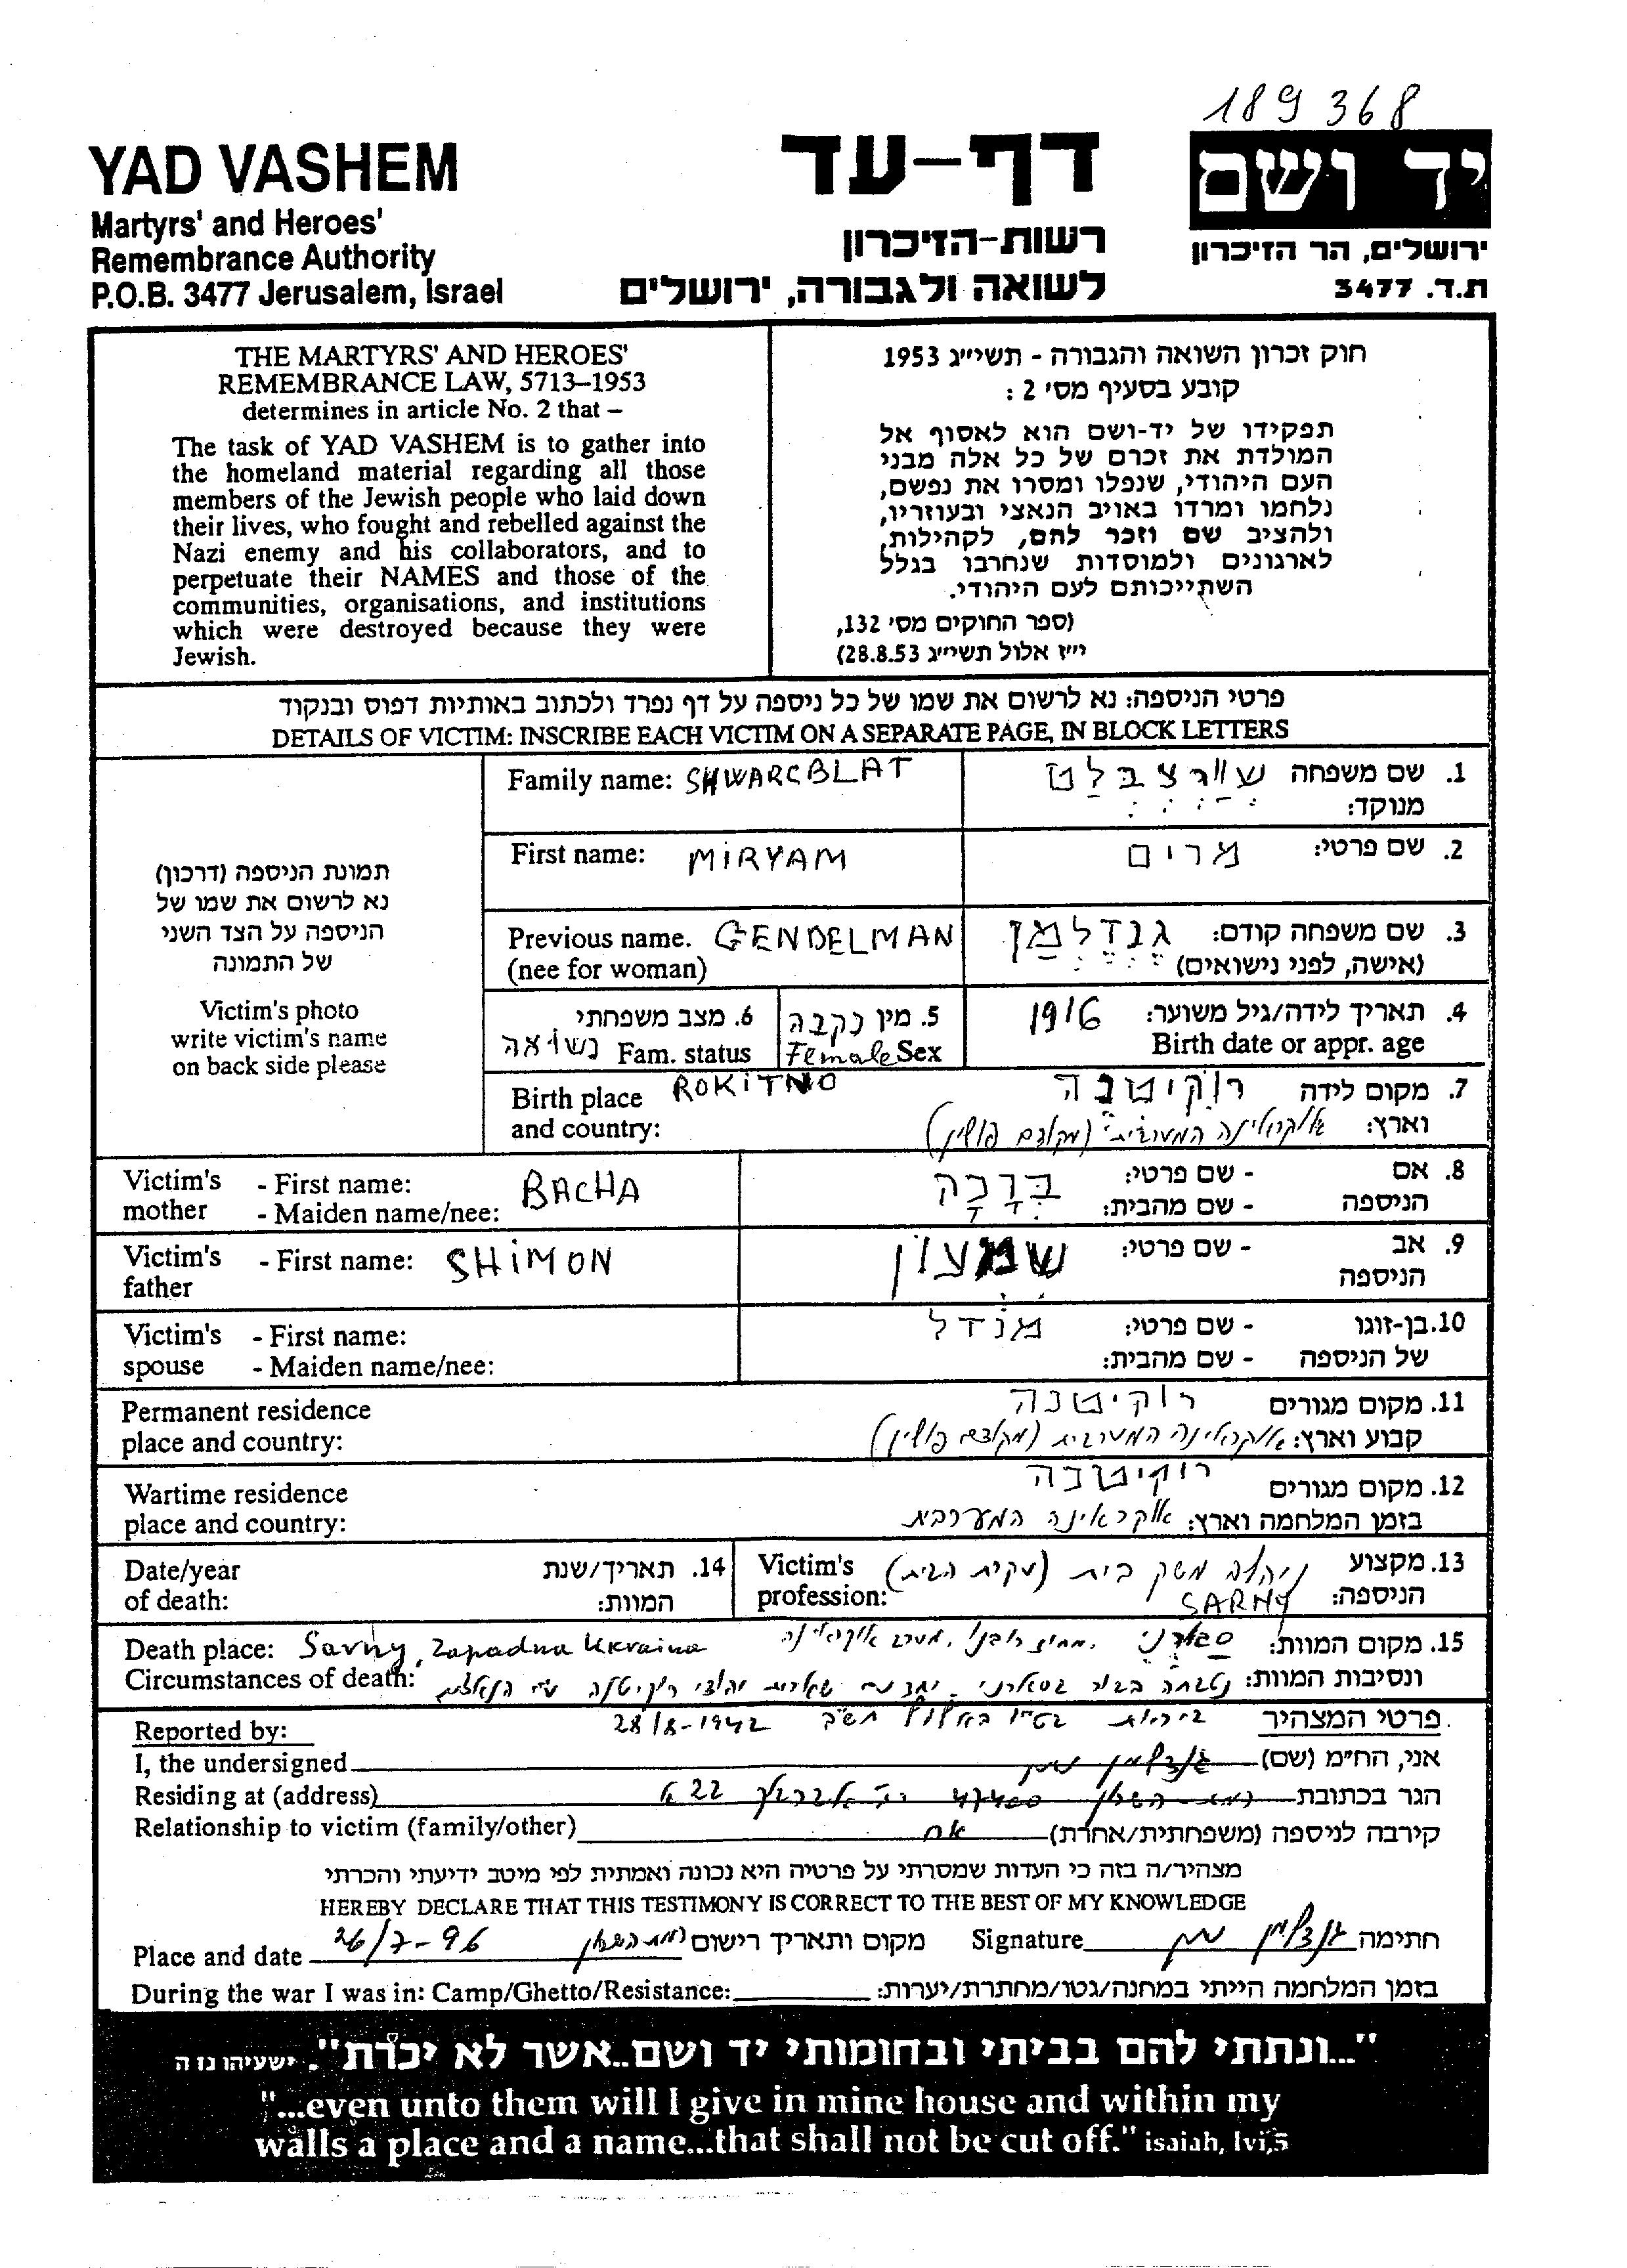 189368
YAD VASHEM
Martyrs' and Heroes'
Remembrance Authority
P.O.B. 3477 Jerusalem, Israel
דף-עד
רשות-הזיכרון
לשואה ולגבורה, ירושלים
יד ושם
ירושלים, הר הזיכרון
ת.ד. 3477
THE MARTYRS' AND HEROES'
REMEMBRANCE LAW, 5713–1953
determines in article No. 2 that –
The task of YAD VASHEM is to gather into
the homeland material regarding all those
members of the Jewish people who laid down
their lives, who fought and rebelled against the
Nazi enemy and his collaborators, and to
perpetuate their NAMES and those of the
communities, organisations, and institutions
which were destroyed because they were
Jewish.
חוק זכרון השואה והגבורה - תשי״ג 1953
קובע בסעיף מס׳ 2 :
תפקידו של יד-ושם הוא לאסוף אל
המולדת את זכרם של כל אלה מבני
העם היהודי, שנפלו ומסרו את נפשם,
נלחמו ומרדו באויב הנאצי ובעוזריו,
ולהציב שם וזכר להם, לקהילות,
לארגונים ולמוסדות שנחרבו בגלל
השתייכותם לעם היהודי.
(ספר החוקים מס׳ 132,
י״ז אלול תשי״ג 28.8.53)
פרטי הניספה: נא לרשום את שמו של כל ניספה על דף נפרד ולכתוב באותיות דפוס ובנקוד
DETAILS OF VICTIM: INSCRIBE EACH VICTIM ON A SEPARATE PAGE, IN BLOCK LETTERS
תמונת הניספה (דרכון)
נא לרשום את שמו של
הניספה על הצד השני
של התמונה
Victim's photo
write victim's name
on back side please
Family name: SHWARCBLAT
1. שם משפחה שוורצבלט
מנוקד:
First name: MIRYAM
2. שם פרטי: מרים
Previous name. GENDELMAN
(nee for woman)
3. שם משפחה קודם: גנדלמן
(אישה, לפני נישואים)
4. תאריך לידה/גיל משוער: 1916
Birth date or appr. age
5. מין נקבה
Female Sex
6. מצב משפחתי
Fam. status נשואה
Birth place ROKITNO
and country:
7. מקום לידה רוקיטנה
וארץ: אוקראינה המערבית (מקודם פולין)
Victim's mother - First name: BACHA
- Maiden name/nee:
8. אם הניספה - שם פרטי: ברכה
- שם מהבית:
Victim's father - First name: SHIMON
9. אב הניספה - שם פרטי: שמעון
Victim's spouse - First name:
- Maiden name/nee:
10. בן-זוגו של הניספה - שם פרטי: מנדל
- שם מהבית:
Permanent residence
place and country:
11. מקום מגורים רוקיטנה
קבוע וארץ: אוקראינה המערבית (מקודם פולין)
Wartime residence
place and country:
12. מקום מגורים רוקיטנה
בזמן המלחמה וארץ: אוקראינה המערבית
Date/year
of death:
14. תאריך/שנת
המוות:
Victim's
profession:
13. מקצוע ניהול משק בית (עקרת הבית)
הניספה: SARNY
Death place: Sarny, Zapadna Ukraina
15. מקום המוות: סארני, מחוז רובנו, מערב אוקראינה
Circumstances of death:
ונסיבות המוות: נטבחה בבור בסארני יחד עם שארית יהודי רוקיטנה ע״י הנאצים
בט״ו באלול תש״ב 28/8-1942
Reported by:
פרטי המצהיר
I, the undersigned
אני, החי״מ (שם) גנדלמן
Residing at (address)
הגר בכתובת רמת השרון 47400 22
Relationship to victim (family/other)
קירבה לניספה (משפחתית/אחרת) אח
מצהיר/ה בזה כי העדות שמסרתי על פרטיה היא נכונה ואמתית לפי מיטב ידיעתי והכרתי
HEREBY DECLARE THAT THIS TESTIMONY IS CORRECT TO THE BEST OF MY KNOWLEDGE
Place and date 26/7-96
מקום ותאריך רישום רמת השרון
Signature
חתימה גנדלמן
During the war I was in: Camp/Ghetto/Resistance:
בזמן המלחמה הייתי במחנה/גטו/מחתרת/יערות:
"...ונתתי להם בביתי ובחומותי יד ושם..אשר לא יכרת". ישעיהו נו ה
"...even unto them will I give in mine house and within my
walls a place and a name...that shall not be cut off." isaiah, lvi,5